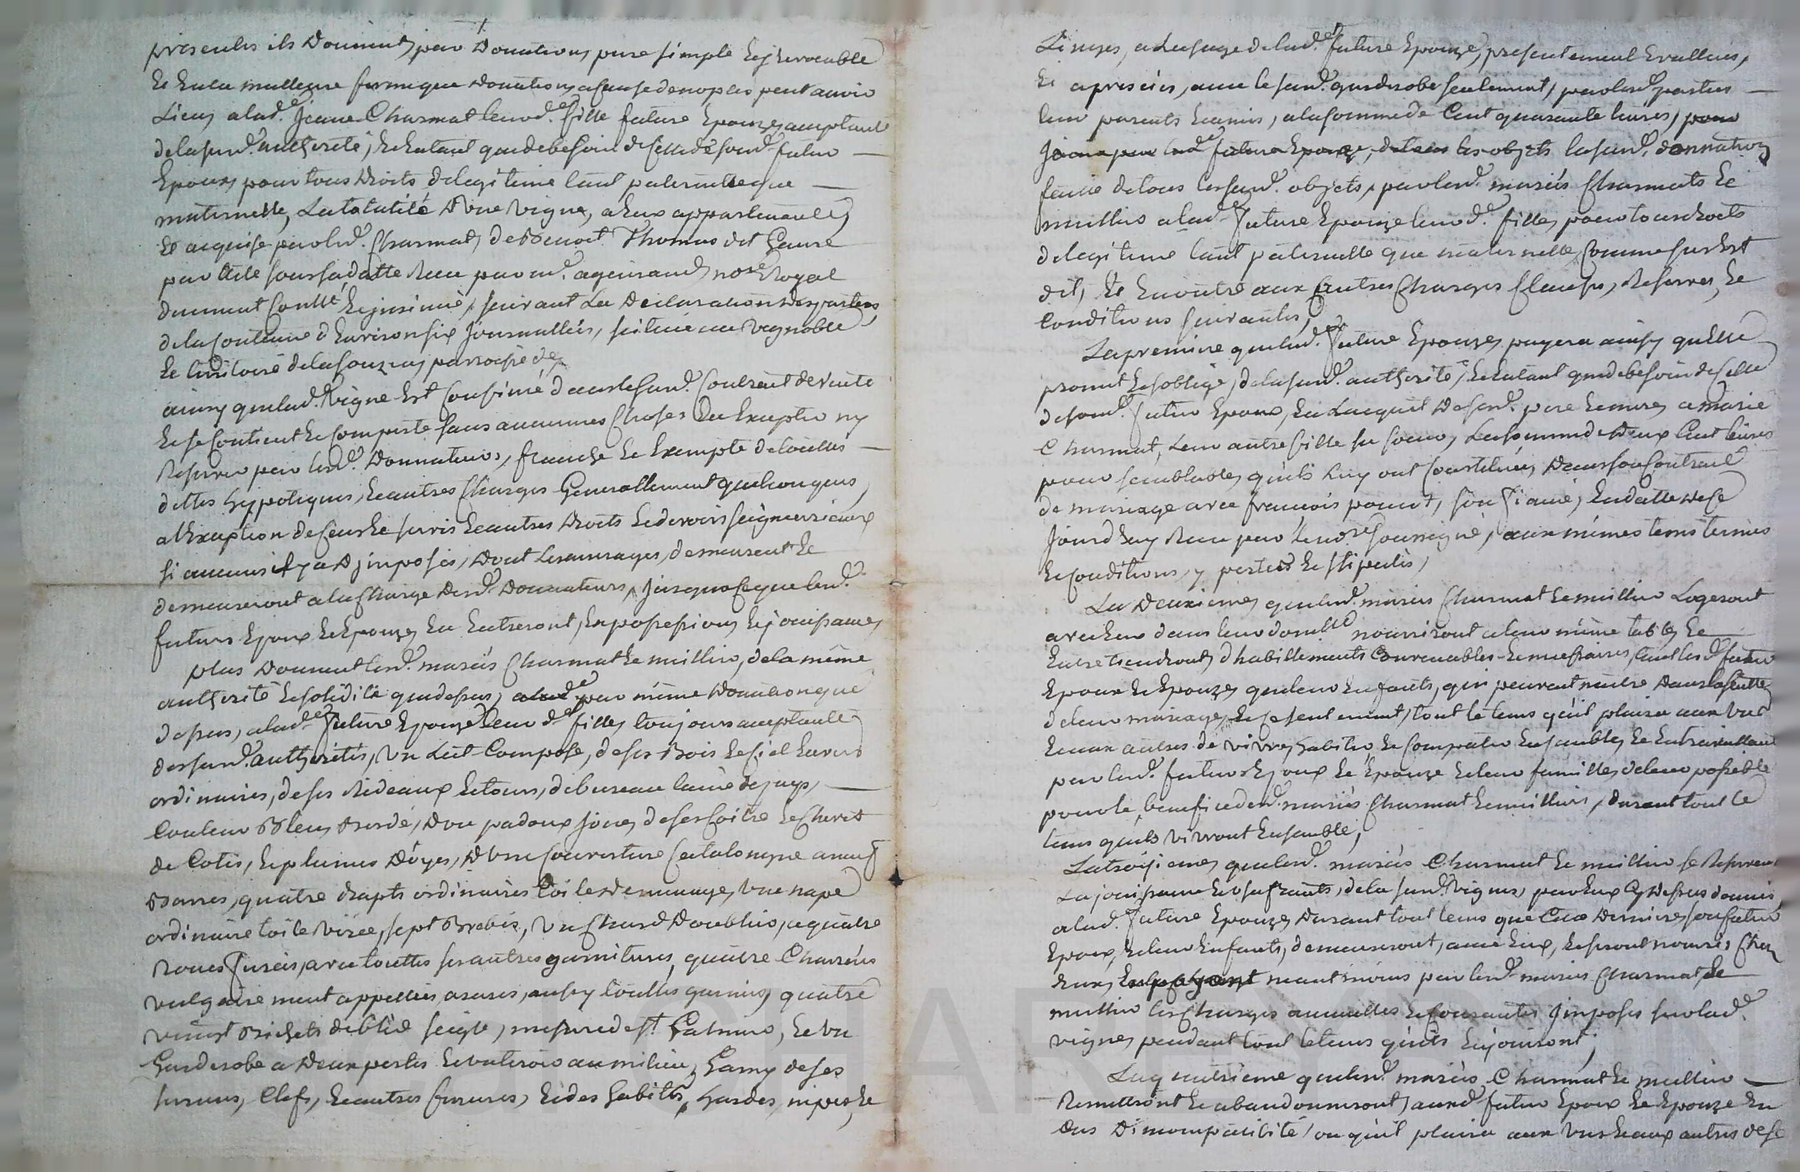 presentes ils Donnent, par Donations pure simple et jrrevocable
Et En la meilleure forme que Donations a cause de nopces peut avoir
Lieu, a lad.e Jeanne Charmat leurd.e fille future Epouze, acceptante
de la susd.e authorité, Et Entant que de besoin de celle de sond. futur
Epoux, pour tous Droits de legitime tant paternelle que
maternelle, La totalité D'une vigne, a Eux appartenante,
Et acquise par led. Charmat, de Benoit Thomas dit
par acte sous sa datte Recu par me. no.re Royal
duement Conttlé, Et jnsinué, suivant La Declaration des parties,
de la Contenue d'Environ six journallées, située au vignoble
Et territoire de la parroisse
ainsy que lad. vigne Est Confinée dans le susd. Contract de vente
Et se Contient Et Comporte sans aucunes Choses En Excepter ny
Reserver par lesd. Donnateurs, franche Et Exempte de touttes
dettes hypoteques, Et autres Charges Generallement quelconques,
a l'Exception de Cens Et servis Et autres Droits Et devoirs seigneuriaux
si aucuns il y a D'jmposés, Dont Les arrerages, demeurent Et
demeureront a la Charge Desd. Donnateurs, jusqu'a ce que lesd.
futurs Epoux Et Epouze En Entreront, En possession Et jouissance,
plus Donnent lesd. mariés Charmat Et mullier, de la même
authorité Et solidité que dessus, par même Donation que
dessus, a lad.e future Epouze leurd.e fille, toujours acceptante
des susd. authorités, Un Lit Composé, de ses Bois Et Ciel
ordinaires, de ses Rideaux Et tours, de bureau laine de pays,
Couleur Bleu, Bordé, D'un padoux jaune, de ses Coitre Et Chevet
de Cotis, Et plumes D'oyes, D'Une Couverture Catalogne a neuf
Barres, quatre draps ordinaires toile de menage, Une nape
ordinaire toile virée, sept Brebis, Un Chard Doublier, a quatre
Roues ferrées, avec touttes ses autres garnitures, quatre
vulgairement appellées araires, aussy touttes garnies, quatre
vingt Bichets de bled seigle, mesure de st. Galmier, Et Un
Garderobe a Deux portes Et un tiroir au milieu, Garny de ses
serrures, Clefs, Et autres ferrures, Et des habits, hardes, nipes, Et
Linges, a L'usage de lad.e future Epouze, presentement Evallués,
Et apreciés, avec le susd. garderobe seulement, par lesd. parties
leur parents Et amis, a la somme de Cent quarante livres,
les objets la susd. donnation
faitte de tous les susd. objets, par lesd. mariés Charmats Et
mullier a lad. future Epouze leurd.e fille, pour tous droits
de legitime tant paternelle que maternelle, Comme sus Est
dit, Et En outre aux autres Charges Clauses, Reserves, Et
Conditions suivantes,
La premiere que lad. future Epouze, payera ainsy qu'Elle
promet Et s'oblige, de la susd. authorité, Et Entant que de besoin de celle
de sond. futur Epoux, En L'acquit De sesd. pere Et mere, a marie
Charmat, leur autre fille sa soeur, La somme de Deux Cent livres
pour semblable, qu'ils Luy ont Constituée, Dans son Contract
de mariage avec françois son fiancé, En datte de Ce
jourd'huy Recu par le no.re soussigné, aux mêmes tems termes
Et Conditions, y portés Et stipulés,
La Deuxieme, que lesd. mariés Charmat Et mullier Logeront
avec Eux dans leur domille nourriront a leur même table, Et
Entretiendront, d'habillements Convenables Et necessaires, tant lesd. futur
Epoux Et Epouze, que leur Enfants, qui peuvent naitre Dans la suitte
de leur mariage, Et ce seulement, tout le tems qu'il plaira aux Uns
Et aux autres de vivre, habiter, Et Compatir Ensemble, Et En travaillant
par lesd. futurs Epoux Et Epouze Et leur famille, de leur possible
pour le beneficed desd. mariés Charmat Et mullier, durant tout le
tems qu'ils vivront Ensemble,
La troisieme, que lesd. mariés Charmat Et mullier se Reservent
La jouissance Et usufruits, de la susd. vigne, par Eux Cy Dessus donnée,
a lad. future Epouze, Durant tout tems que Cette Derniere, son futur
Epoux, Et leur Enfants, demeureront, avec Eux, Et seront nourris Chez
Eux, Et payant neantmoins par lesd. mariés Charmat, Et
mullier les Charges annuelles Et Courantes jmposés sur lad.e
vigne, pendant tout le tems qu'ils En jouiront,
La quatrieme que lesd. mariés Charmat Et mullier
Remettront Et abandonneront, auxd. futur Epoux Et Epouze En
Cas D'incompatibilité, ou qu'il plaira aux Uns Et aux autres de se